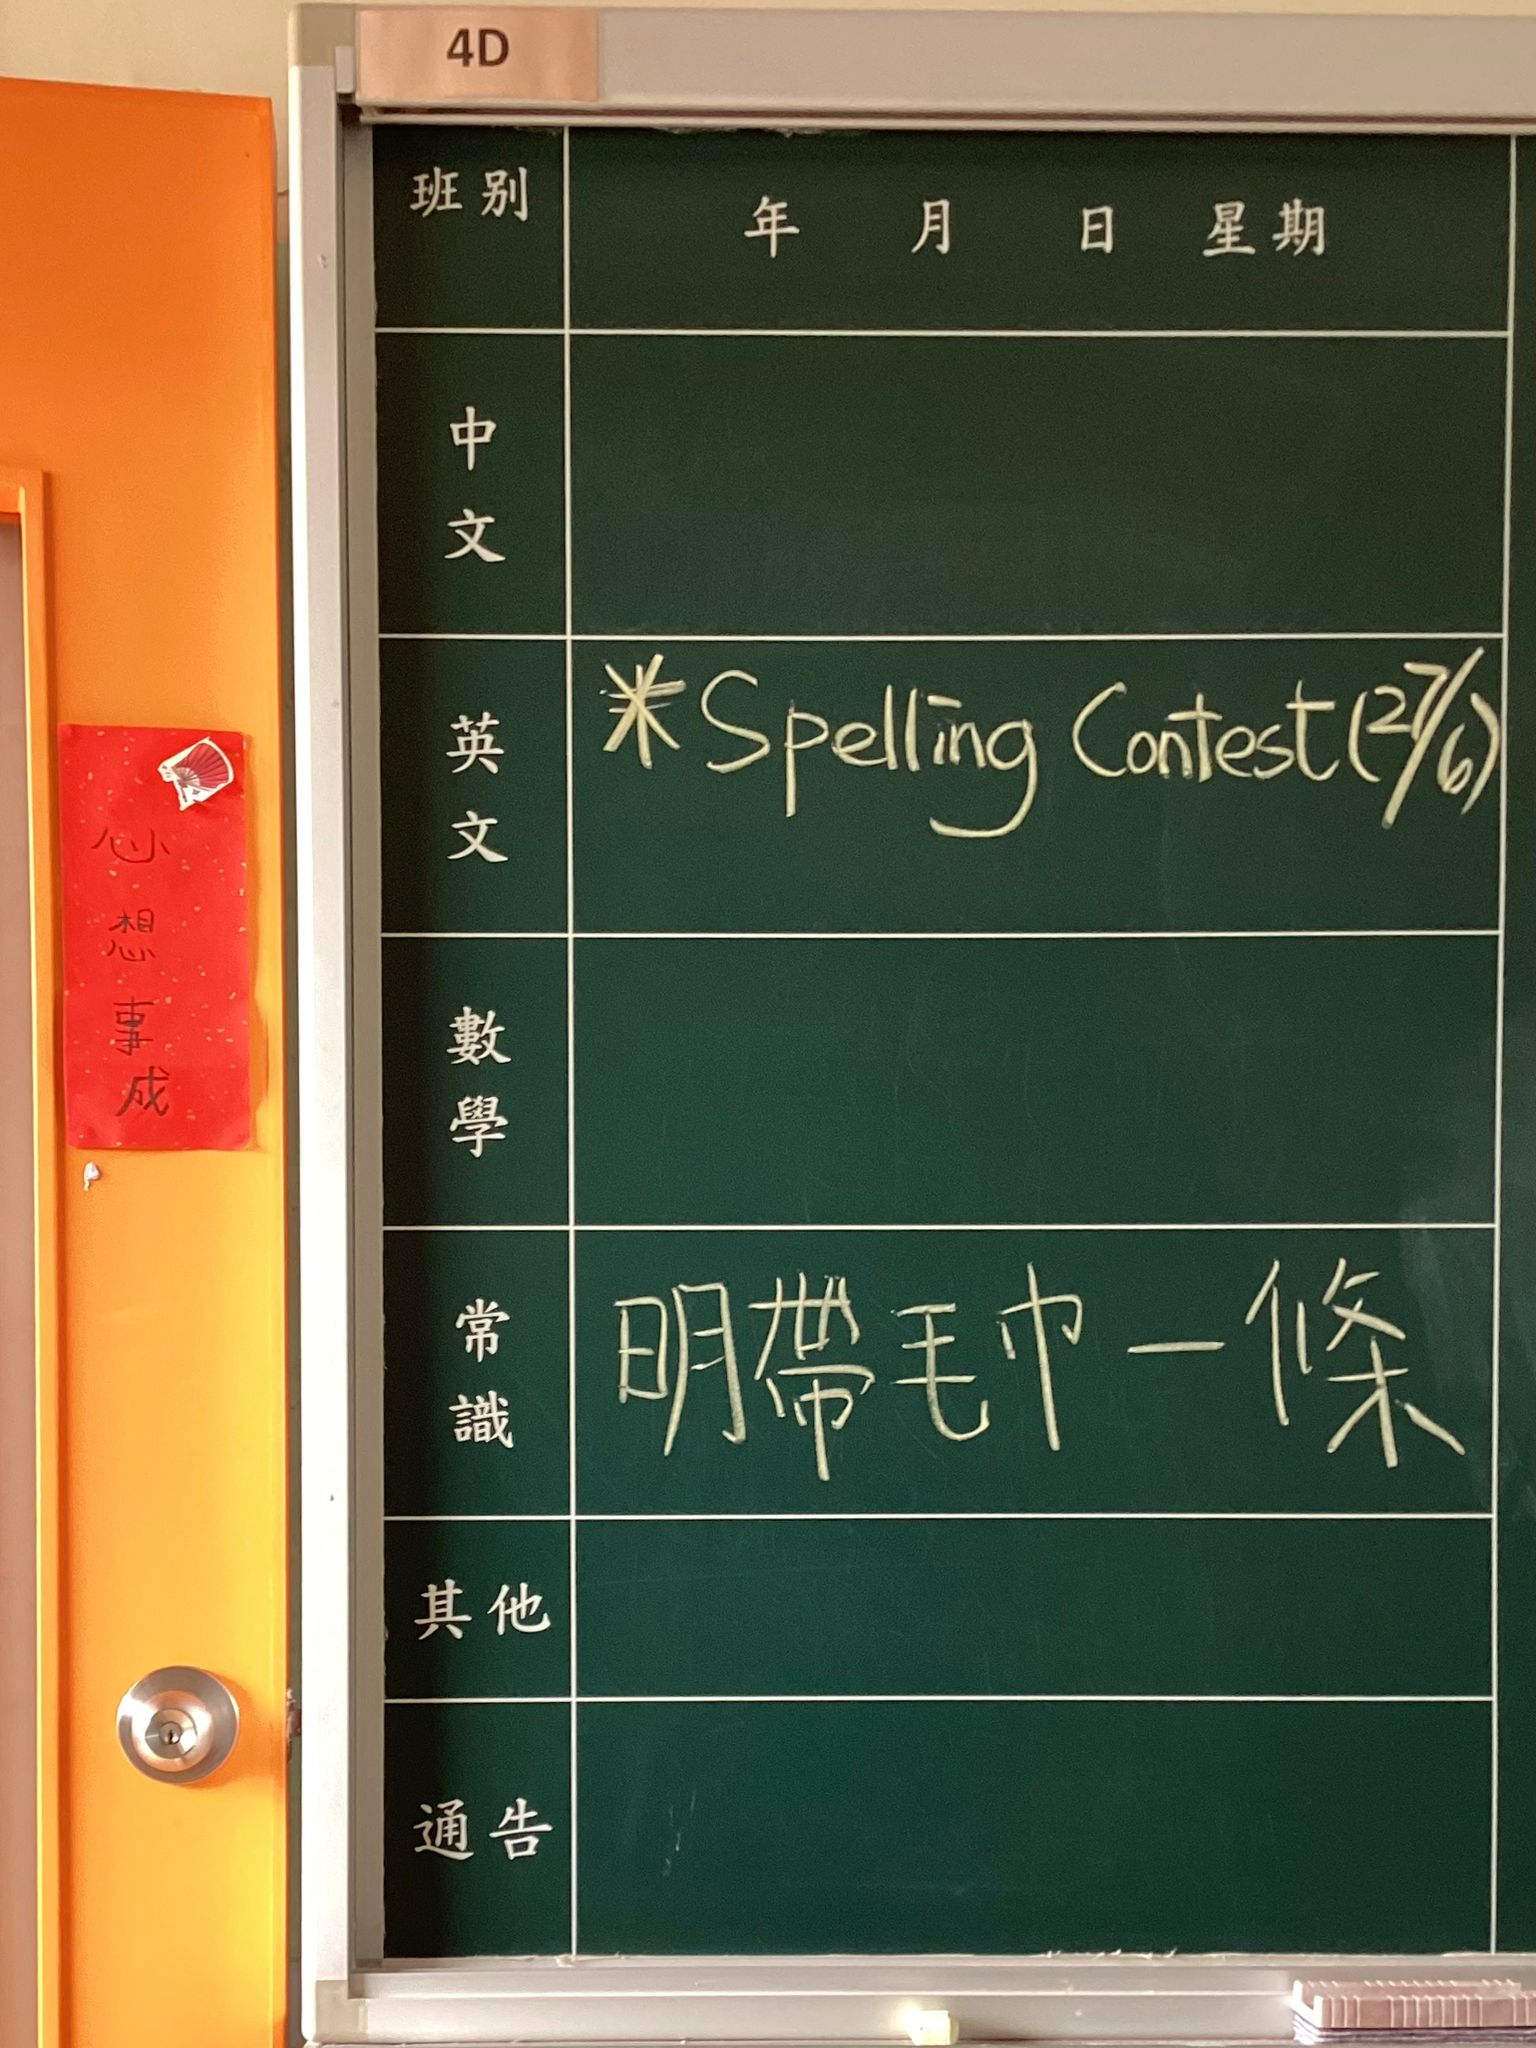 4D
班別
年 月 日 星期
中文
英文
*Spelling Contest (27/6)
數學
常識
明帶毛巾一條
其他
通告
心想事成